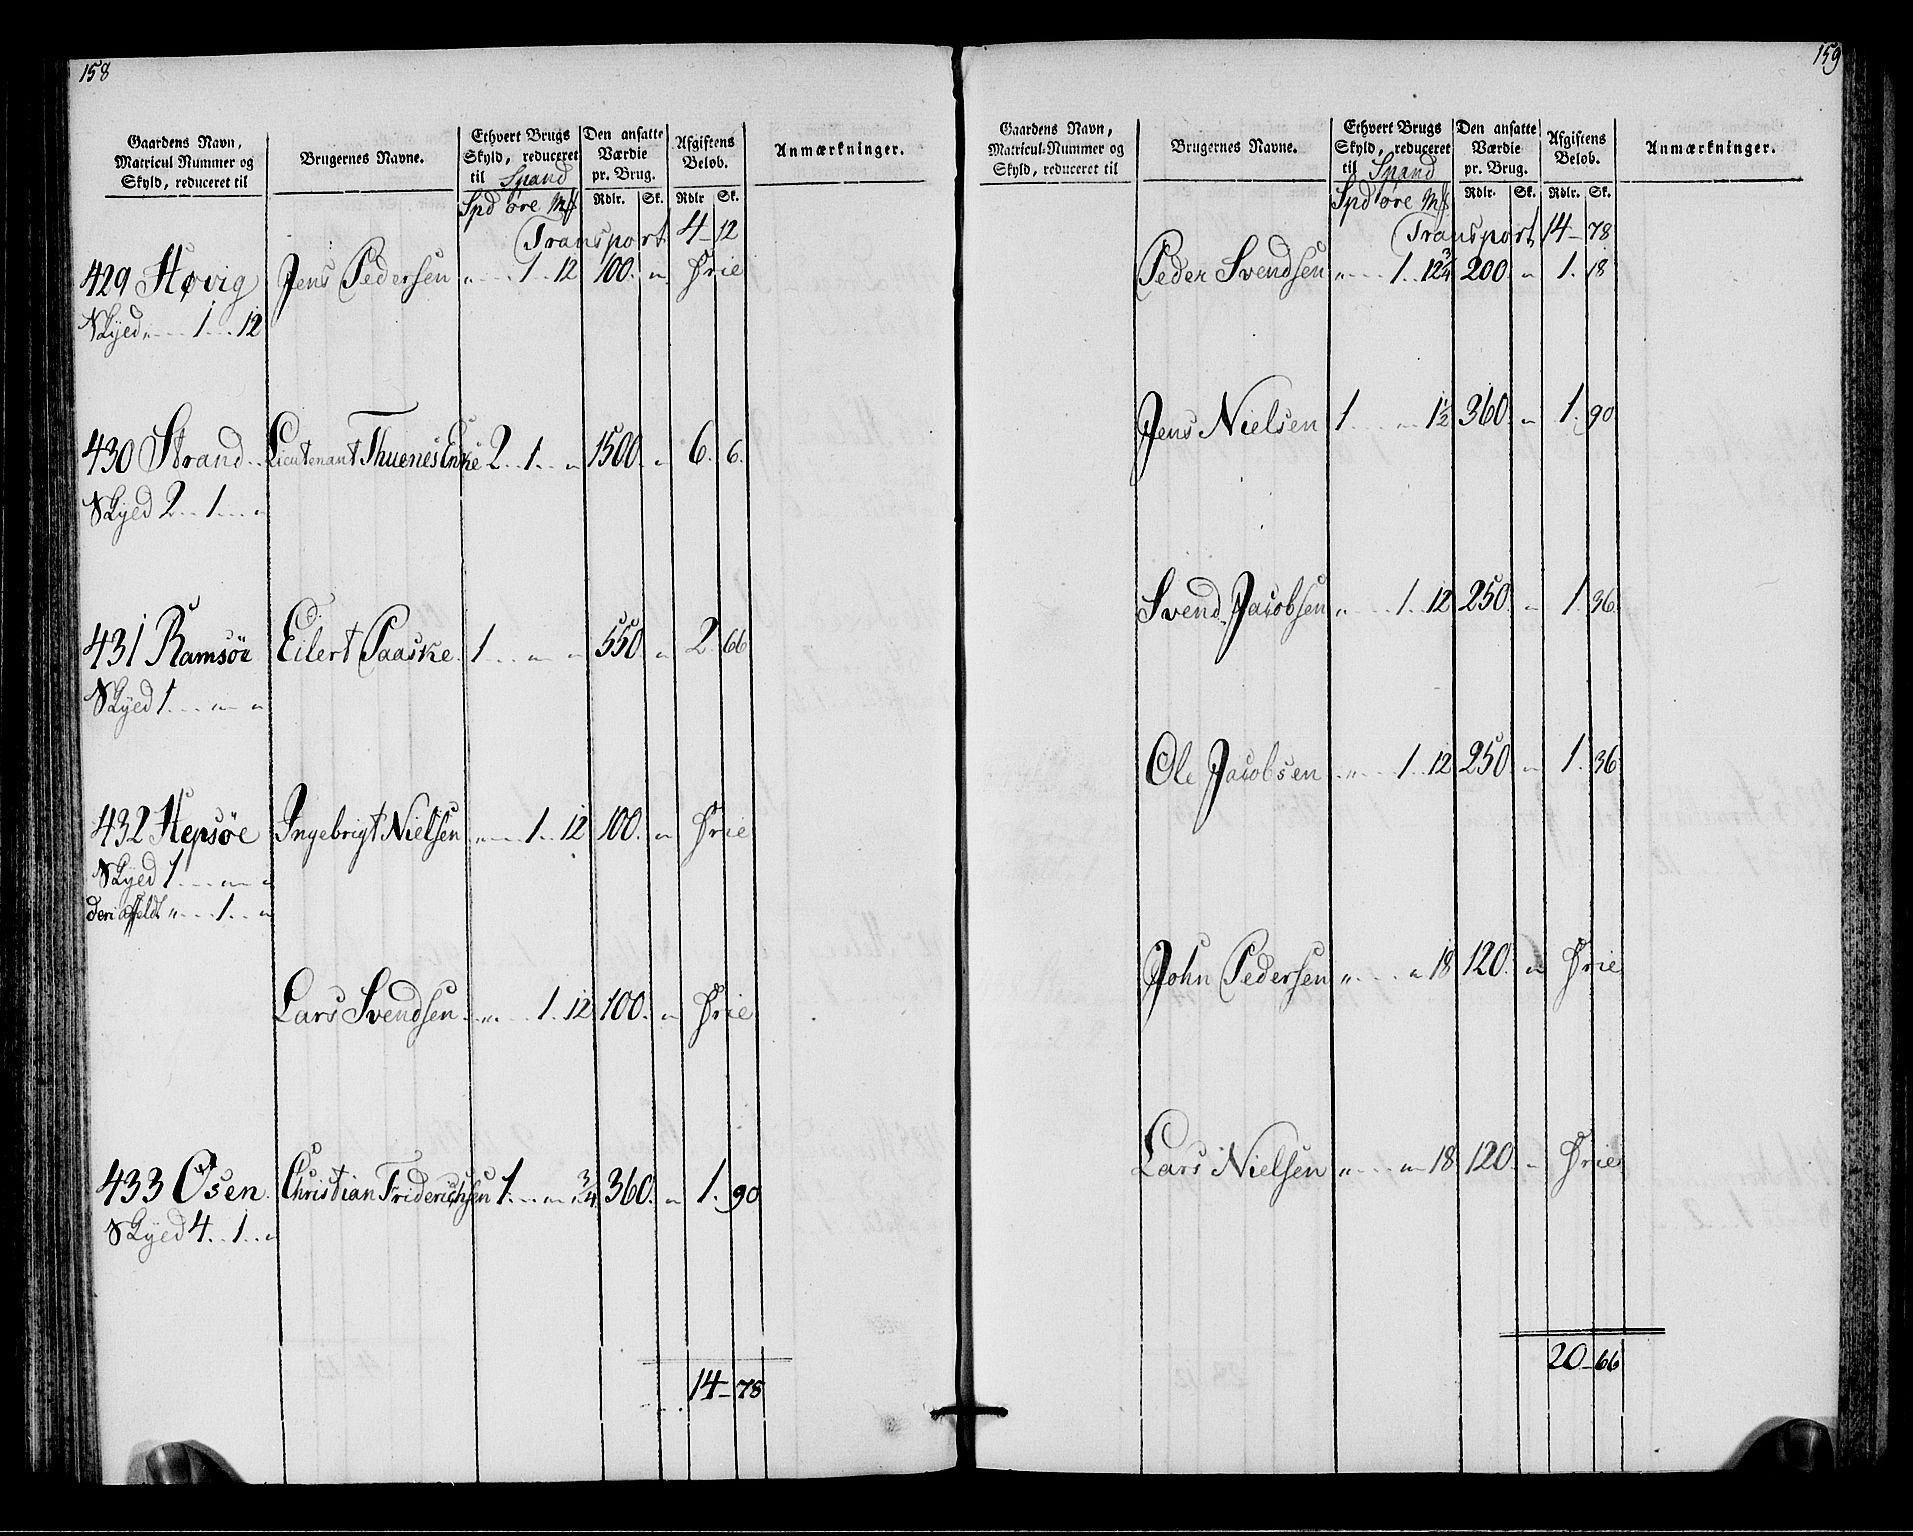 158
Gaardens Navn, Matricul Nummer og Skyld, reduceret til | Brugernes Navne. | Ethvert Brugs Skyld, reduceret til Spand | Den ansatte Værdie pr. Brug. | Afgiftens Beløb. | Anmærkninger.
Spd øre Mk | Rdlr. Sk. | Rdlr Sk.
Transport 4 - 12
429 Høvig Jens Pedersen „ 1 12 100. „ Frie
Skyed „ 1 12
430 Strand Lieutenant Thuenes Enke 2 1 „ 1500. „ 6. 6.
Skyed 2 1 „
431 Ramsøe Eilert Paaske 1 „ „ 550. „ 2. 66
Skyed 1 „ „
432 Hepsøe Ingebrigt Nielsen „ 1 12 100. „ Frie
Skyed 1 „ „
deri affeldt „ 1 „
Lars Svendsen „ 1 12 100. „ Frie
433 Osen Christian Friderichsen 1 „ 3/4 360. „ 1. 90
Skyed 4 1 „
14 - 78
159
Gaardens Navn, Matricul-Nummer og Skyld, reduceret til | Brugernes Navne. | Ethvert Brugs Skyld, reduceret til Spand | Den ansatte Værdie pr. Brug. | Afgiftens Beløb. | Anmærkninger.
Spd øre Mk | Rdlr. Sk. | Rdlr. Sk.
Transport 14 - 78
Peder Svendsen „ 1 12 3/4 200 „ 1. 18
Jens Nielsen 1 „ 1 1/2 360. „ 1. 90
Svend Jacobsen „ 1 12 250. „ 1. 36.
Ole Jacobsen „ 1 12 250. „ 1. 36
John Pedersen „ „ 18 120. „ Frie
Lars Nielsen „ „ 18 120. „ Frie
20 - 66